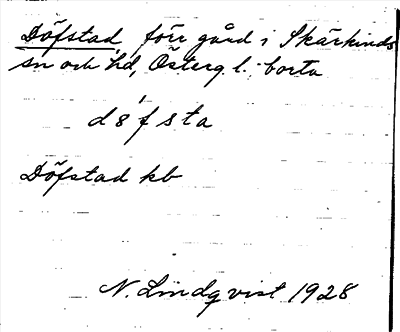 Döfstad, förr gård i Skärkinds
sn och hd, Österg l. borta
d ö́ f s t a
Döfstad kb
N. Lindqvist 1928